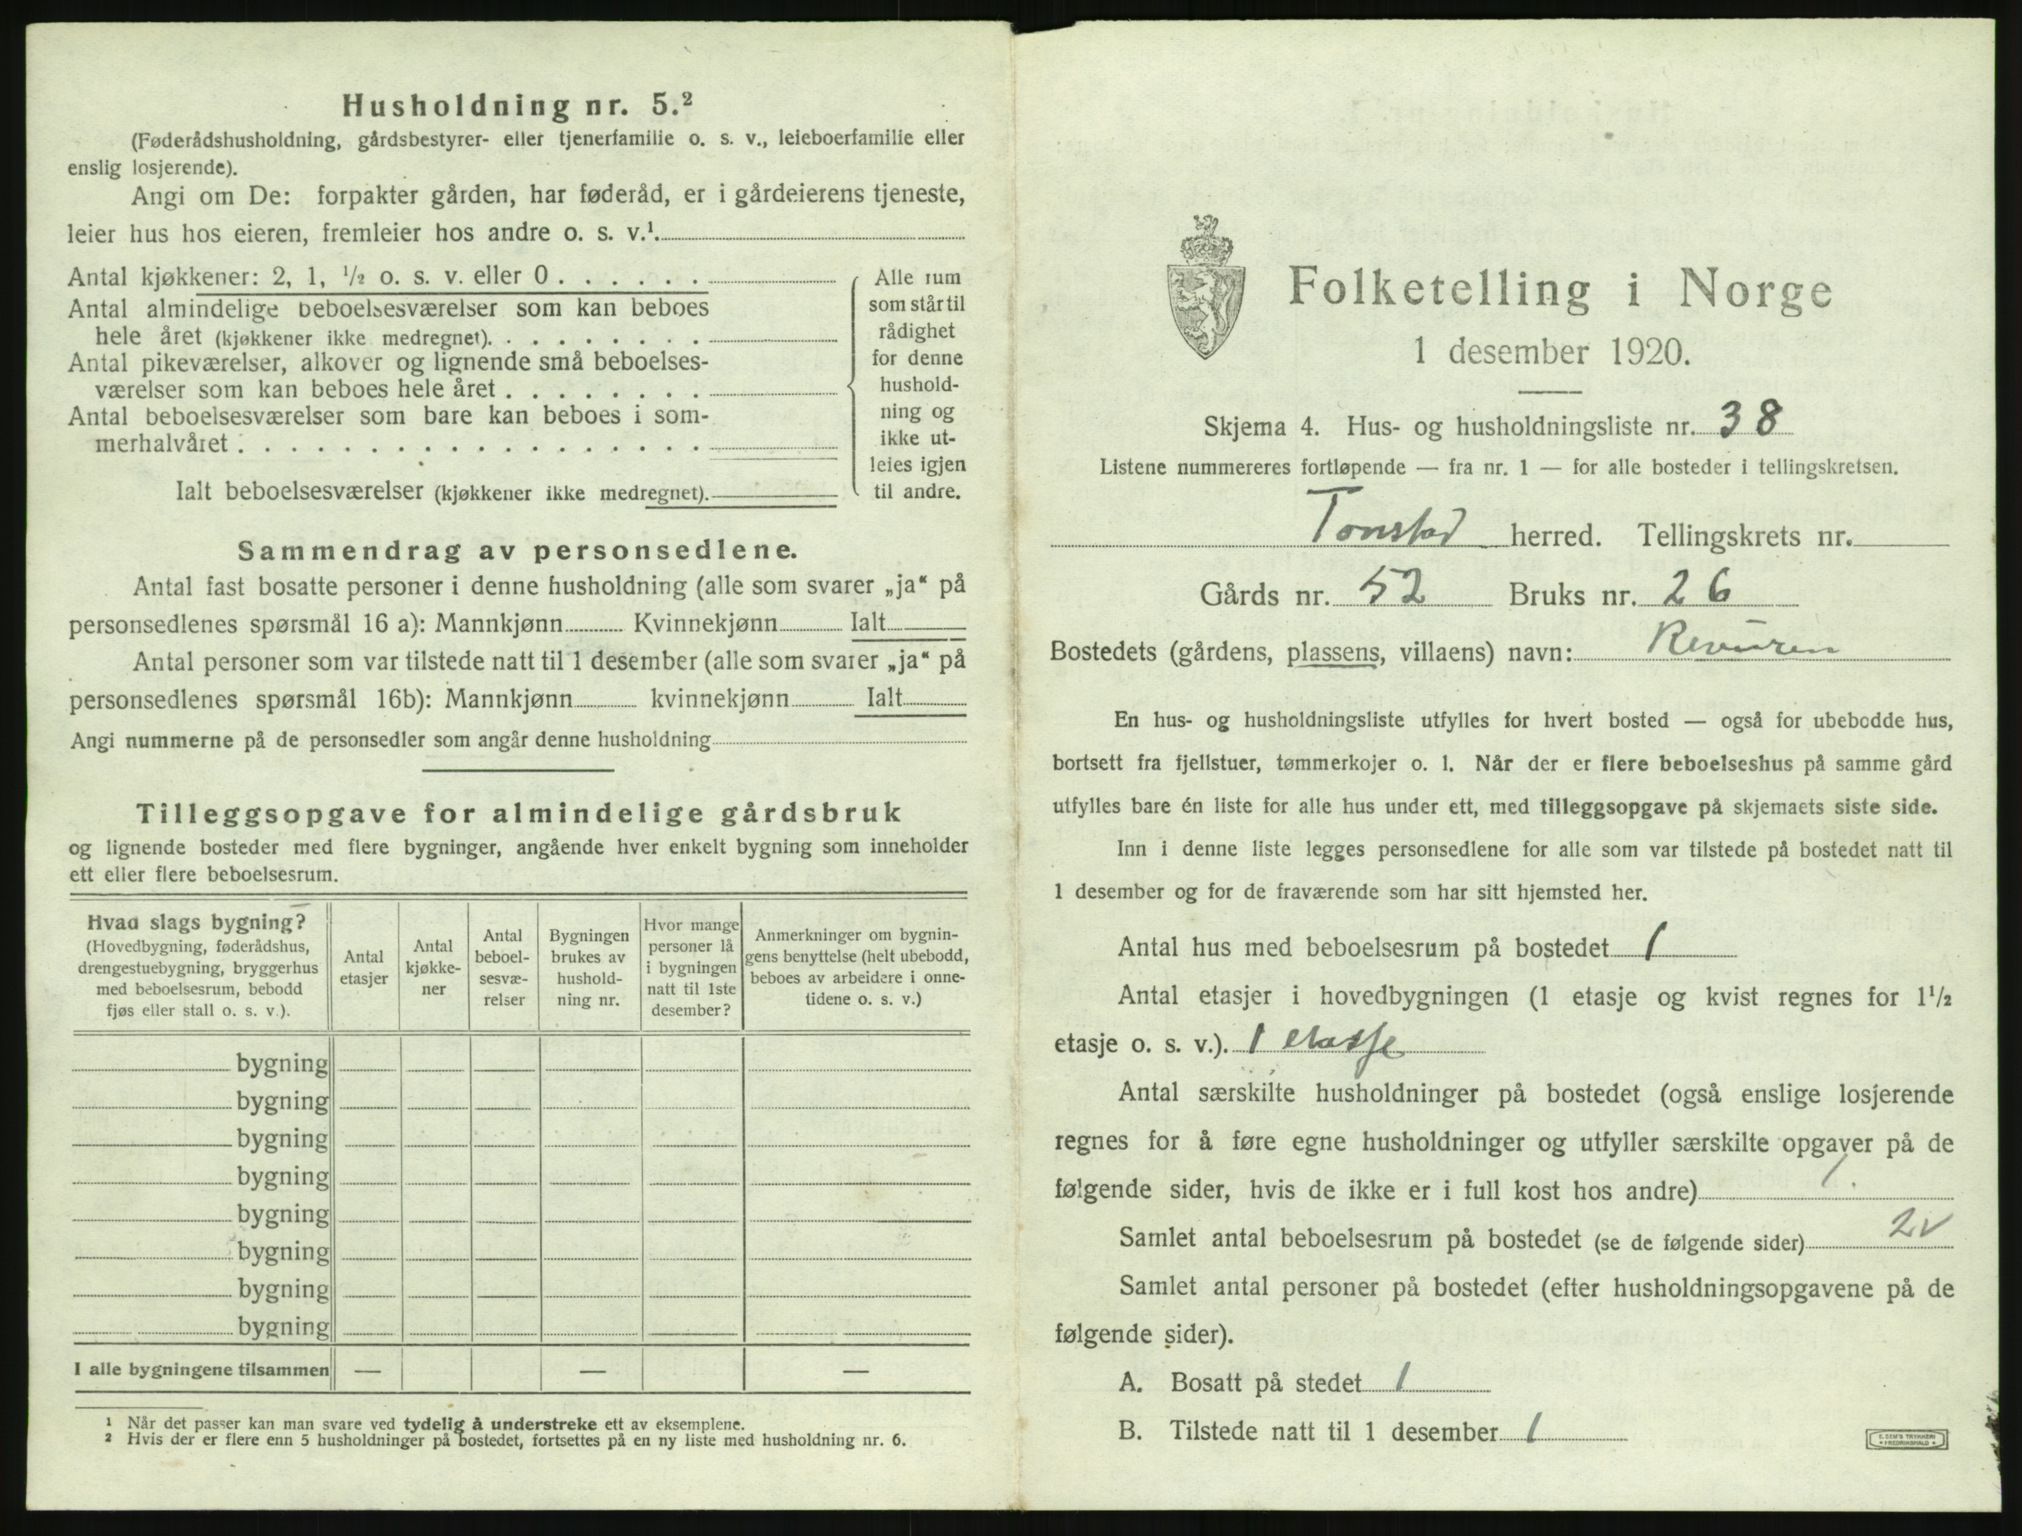 Husholdning nr. 5.²
(Føderådshusholdning, gårdsbestyrer- eller tjenerfamilie o. s. v., leieboerfamilie eller
enslig losjerende).
Angi om De: forpakter gården, har føderåd, er i gårdeierens tjeneste,
leier hus hos eieren, fremleier hos andre o. s. v.¹.
Antal kjøkkener: 2, 1, ½ o. s. v. eller 0 . . . . . .
Antal almindelige beboelsesværelser som kan beboes
hele året (kjøkkener ikke medregnet). . . . . . . . .
Antal pikeværelser, alkover og lignende små beboelses-
værelser som kan beboes hele året . . . . . . . .
Antal beboelsesværelser som bare kan beboes i som-
merhalvåret . . . . . . . . . . . . . . . . . .
Ialt beboelsesværelser (kjøkkener ikke medregnet).
Alle rum
som står til
rådighet
for denne
hushold-
ning og
ikke ut-
leies igjen
til andre.
Sammendrag av personsedlene.
Antal fast bosatte personer i denne husholdning (alle som svarer „ja“ på
personsedlenes spørsmål 16 a): Mannkjønn Kvinnekjønn Ialt
Antal personer som var tilstede natt til 1 desember (alle som svarer „ja“ på
personsedlenes spørsmål 16b): Mannkjønn kvinnekjønn Ialt
Angi nummerne på de personsedler som angår denne husholdning
Tilleggsopgave for almindelige gårdsbruk
og lignende bosteder med flere bygninger, angående hver enkelt bygning som inneholder
ett eller flere beboelsesrum.
Hvad slags bygning?
(Hovedbygning, føderådshus,
drengestuebygning, bryggerhus
med beboelsesrum, bebodd
fjøs eller stall o. s. v.).
Antal
etasjer
Antal
kjøkke-
ner
Antal
beboel-
sesvæ-
relser
Bygningen
brukes av
hushold-
ning nr.
Hvor mange
personer lå
i bygningen
natt til 1ste
desember?
Anmerkninger om bygnin-
gens benyttelse (helt ubebodd,
beboes av arbeidere i onne-
tidene o. s. v.)
bygning
bygning
bygning
bygning
bygning
bygning
bygning
bygning
I alle bygningene tilsammen — — —
¹ Når det passer kan man svare ved tydelig å understreke ett av eksemplene.
² Hvis der er flere enn 5 husholdninger på bostedet, fortsettes på en ny liste med husholdning nr. 6.
Folketelling i Norge
1 desember 1920.
Skjema 4. Hus- og husholdningsliste nr. 38
Listene nummereres fortløpende — fra nr. 1 — for alle bosteder i tellingskretsen.
Tonstad herred. Tellingskrets nr.
Gårds nr. 52 Bruks nr. 26
Bostedets (gårdens, plassens, villaens) navn:
En hus- og husholdningsliste utfylles for hvert bosted — også for ubebodde hus,
bortsett fra fjellstuer, tømmerkojer o. l. Når der er flere beboelseshus på samme gård
utfylles bare én liste for alle hus under ett, med tilleggsopgave på skjemaets siste side.
Inn i denne liste legges personsedlene for alle som var tilstede på bostedet natt til
1 desember og for de fraværende som har sitt hjemsted her.
Antal hus med beboelsesrum på bostedet 1
Antal etasjer i hovedbygningen (1 etasje og kvist regnes for 1½
etasje o. s. v.). 1 etasje
Antal særskilte husholdninger på bostedet (også enslige losjerende
regnes for å føre egne husholdninger og utfyller særskilte opgaver på de
følgende sider, hvis de ikke er i full kost hos andre) 1.
Samlet antal beboelsesrum på bostedet (se de følgende sider) 2 v
Samlet antal personer på bostedet (efter husholdningsopgavene på de
følgende sider).
A. Bosatt på stedet 1
B. Tilstede natt til 1 desember 1
E. SEM'S TRYKKERI
FREDRIKSHALD